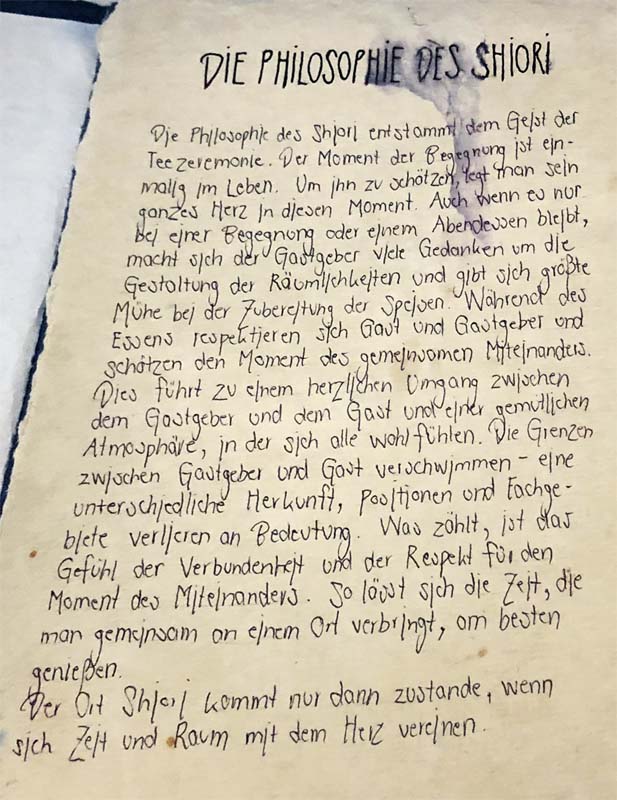 DIE PHILOSOPHIE DES SHIORI
Die Philosophie des Shiori entstammt dem Geist der
Teezeremonie. Der Moment der Begegnung ist ein-
malig im Leben. Um ihn zu schätzen, legt man sein
ganzes Herz in diesen Moment. Auch wenn es nur
bei einer Begegnung oder einem Abendessen bleibt,
macht sich der Gastgeber viele Gedanken um die
Gestaltung der Räumlichkeiten und gibt sich größte
Mühe bei der Zubereitung der Speisen. Während des
Essens respektieren sich Gast und Gastgeber und
schätzen den Moment des gemeinsamen Miteinanders.
Dies führt zu einem herzlichen Umgang zwischen
dem Gastgeber und dem Gast und einer gemütlichen
Atmosphäre, in der sich alle wohlfühlen. Die Grenzen
zwischen Gastgeber und Gast verschwimmen - eine
unterschiedliche Herkunft, Positionen und Fachge-
biete verlieren an Bedeutung. Was zählt, ist das
Gefühl der Verbundenheit und der Respekt für den
Moment des Miteinanders. So lässt sich die Zeit, die
man gemeinsam an einem Ort verbringt, am besten
genießen.
Der Ort Shiori kommt nur dann zustande, wenn
sich Zeit und Raum mit dem Herz vereinen.